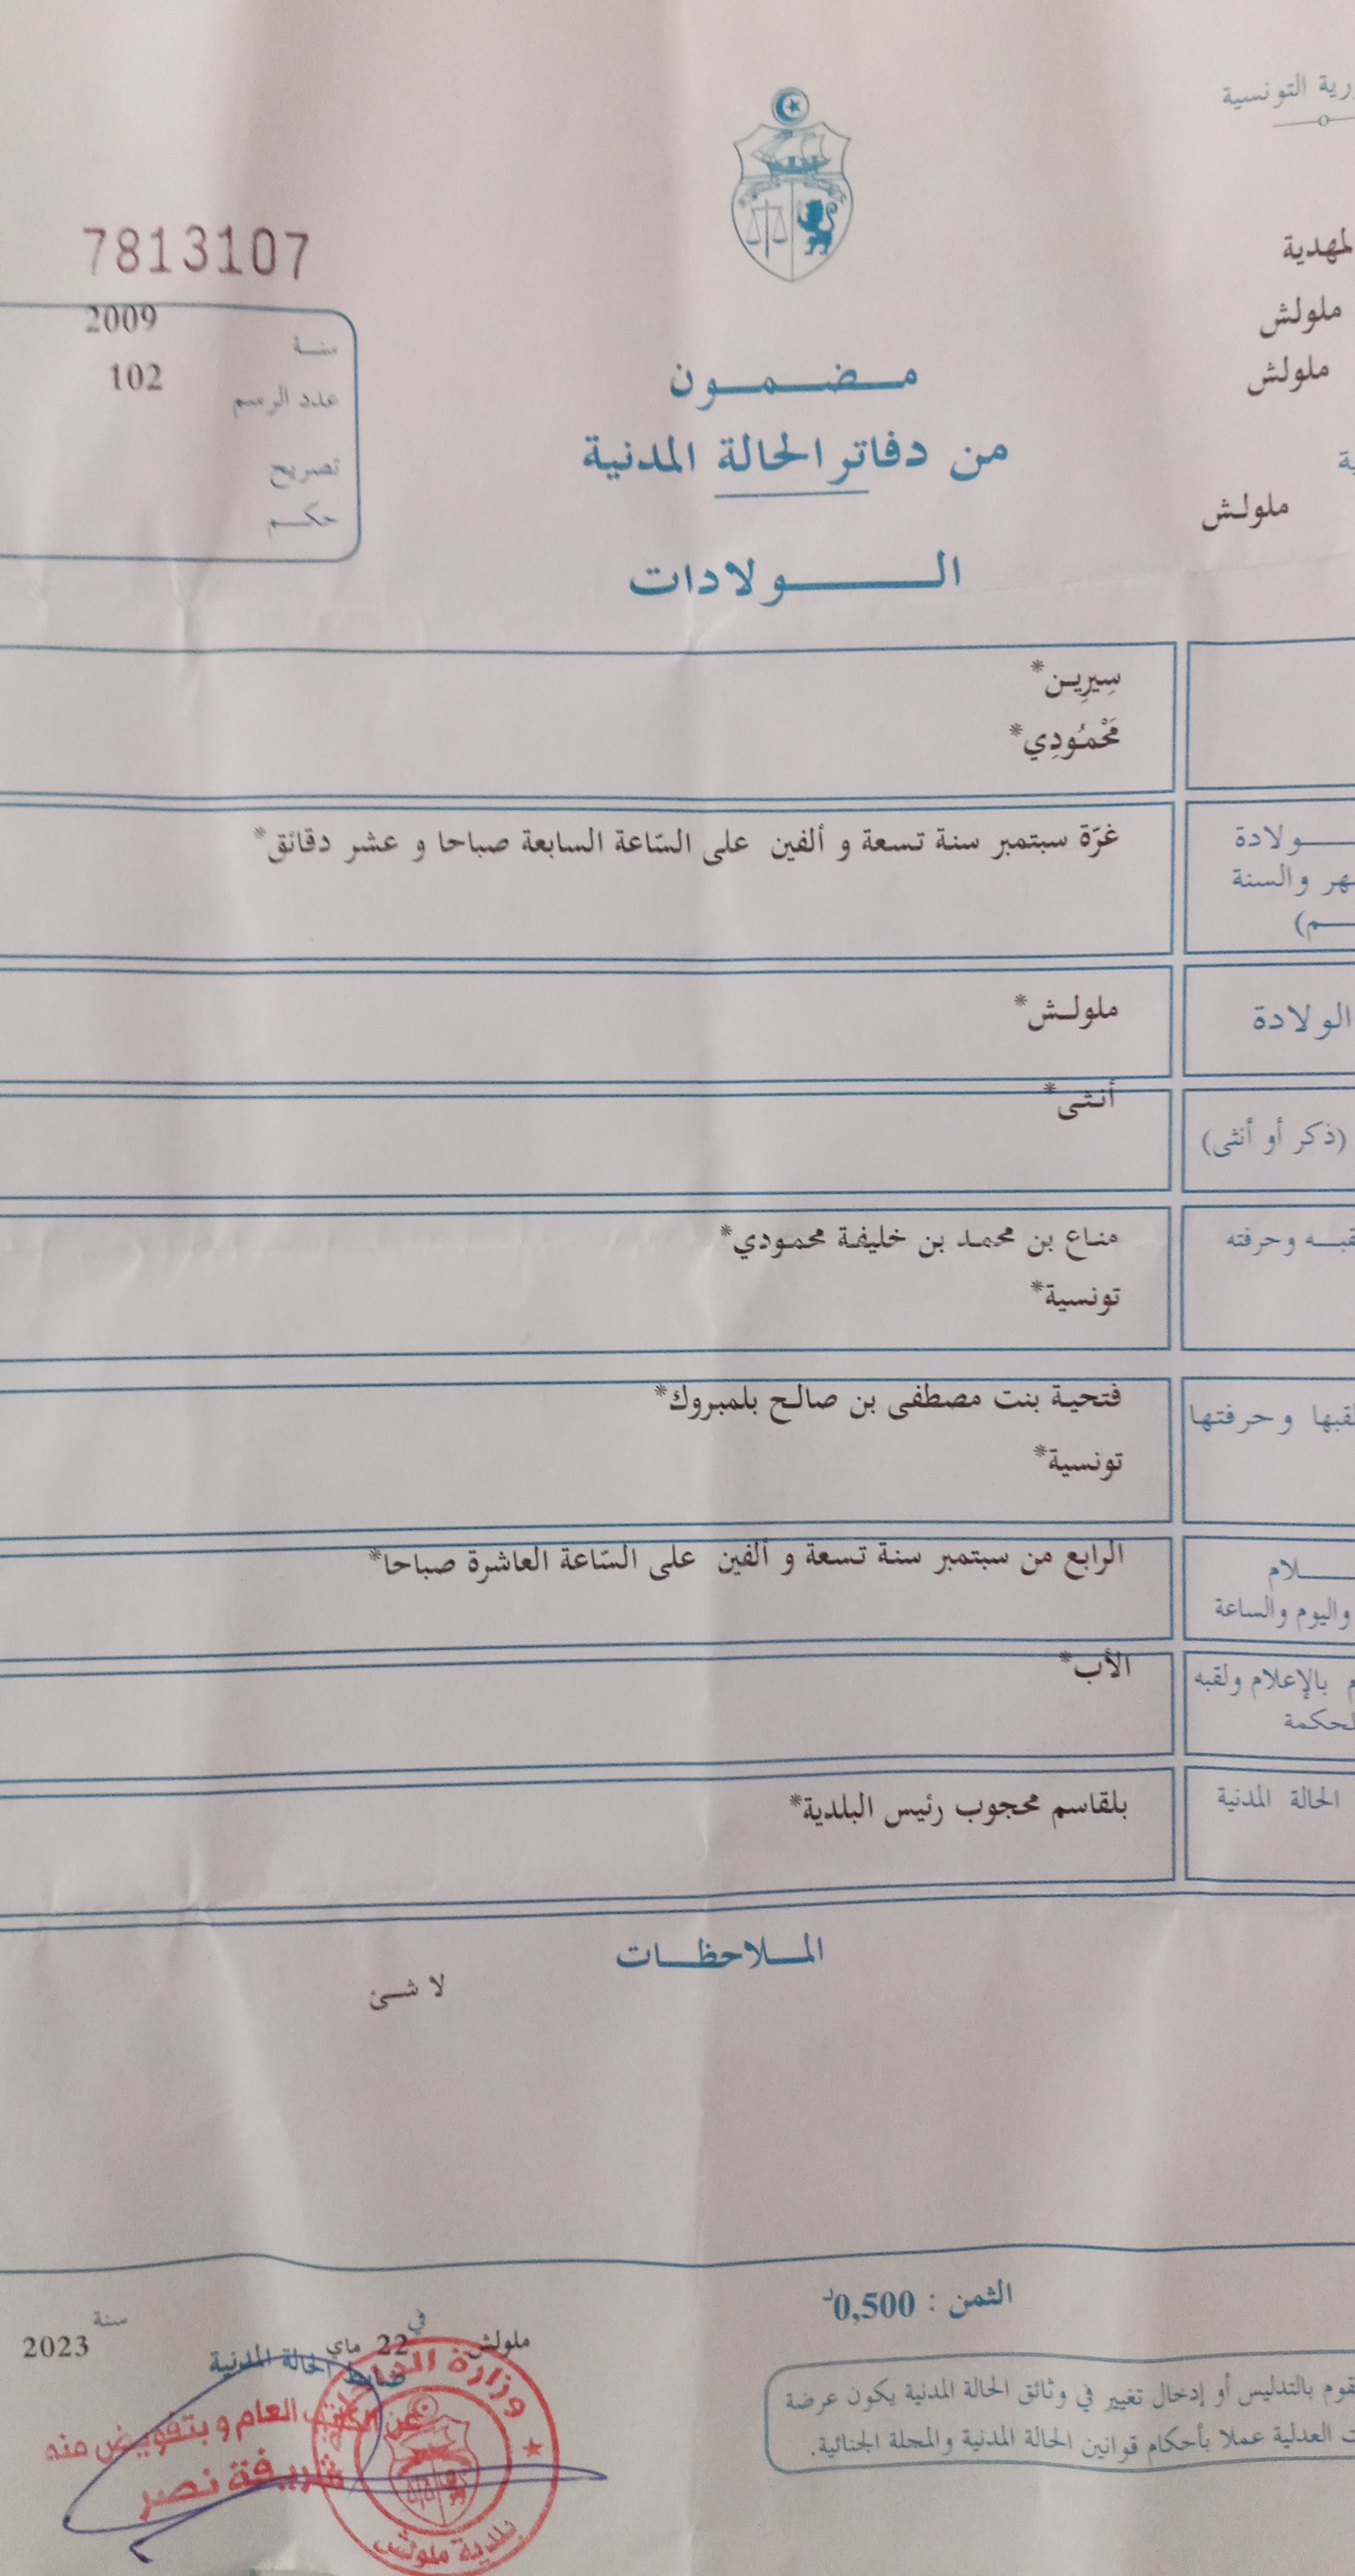 التونسية
7813107
ملولش
2009
سنة
ملولش
102
عدد الرسم
مضمون
من دفاتر الحالة المدنية
تصريح
ملولش
حكم
الولادات
سِيرِين*
مَحْمُودِي*
غرّة سبتمبر سنة تسعة و ألفين على السّاعة السابعة صباحا و عشر دقائق*
والسنة
الولادة
ملولش*
(ذكر أو أنثى)
أنثى*
وحرفته
مناع بن محمد بن خليفة محمودي*
تونسية*
وحرفتها
فتحية بنت مصطفى بن صالح بلمبروك*
تونسية*
الرابع من سبتمبر سنة تسعة و ألفين على السّاعة العاشرة صباحا*
واليوم والساعة
بالإعلام ولقبه
الأب*
الحالة المدنية
بلقاسم محجوب رئيس البلدية*
الملاحظات
لا شئ
الثمن : 0,500د
ملولش في 22 ماي سنة 2023
ضابط الحالة المدنية
بالتدليس أو إدخال تغيير في وثائق الحالة المدنية يكون عرضة
العدلية عملا بأحكام قوانين الحالة المدنية والمجلة الجنائية.
عن الكاتب العام و بتفويض منه
شريفة نصر
وزارة الداخلية
بلدية ملولش